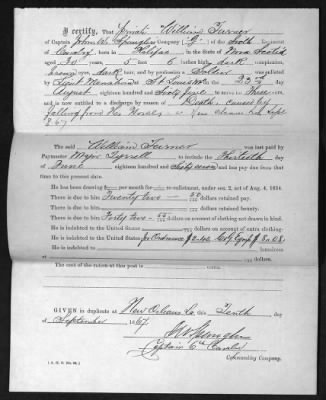 I certify, That Private William Turner
of Captain John W. Spangler Company "H" of the Sixth Regiment
of Cavalry, born in Halifax, in the State of Nova Scotia
aged 30 years, 5 feet 6 inches high, dark complexion,
eyes, dark hair, and by profession a Soldier was enlisted
by Capt at St Louis Mo on the 23
August eighteen hundred and Sixty five to serve Three years,
and is now entitled to a discharge by reason of Death, caused by
falling from his Horse, in New Orleans La Sept
8 67
The said William Turner was last paid by
Paymaster Major Tyrrell to include the Thirtieth day
of June eighteen hundred and Sixty seven and has pay due from that
time to the present date.
He has been drawing $ per month for re-enlistment, under sec. 2, act of Aug. 4, 1854.
There is due to him Twenty two 50/100 dollars retained pay.
There is due to him dollars bounty.
There is due to him Forty two dollars on account of clothing not drawn in kind.
He is indebted to the United States dollars on account of extra clothing.
He is indebted to the United States for Ordnance $2.42
He is indebted to laundress
at
The cost of the ration at this post is
GIVEN in duplicate at New Orleans La this Tenth day
of September 1867.
Captain 6th Cavalry
Commanding Company.